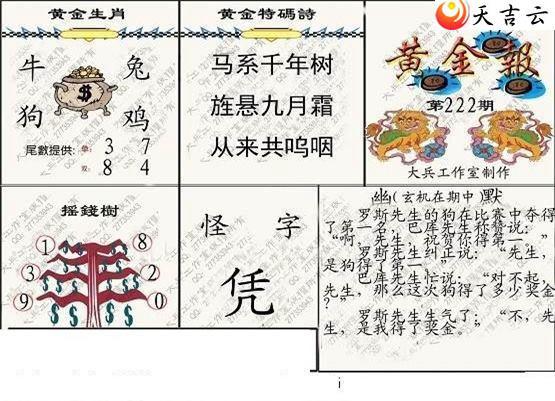 天吉云
黄金生肖
牛 兔
狗 鸡
尾數提供：单：3 7
双：8 4
黄金特碼詩
马系千年树
旌悬九月霜
从来共呜咽
黄金報
第222期
大兵工作室制作
摇錢樹
① ⑧
③ ②
⑨ ⓪
怪 字
凭
幽（玄机在期中）默
罗斯先生的狗在比赛中夺得
了第一名，巴库先生称赞说：
“啊，先生，祝贺你得第一。”
罗斯先生纠正说：“先生，
是狗得了第一。”
巴库先生忙说：“对不起，
先生，那么这次狗得了多少奖金
？”
罗斯先生生气了：“不，先
生，是我得了奖金。”
i